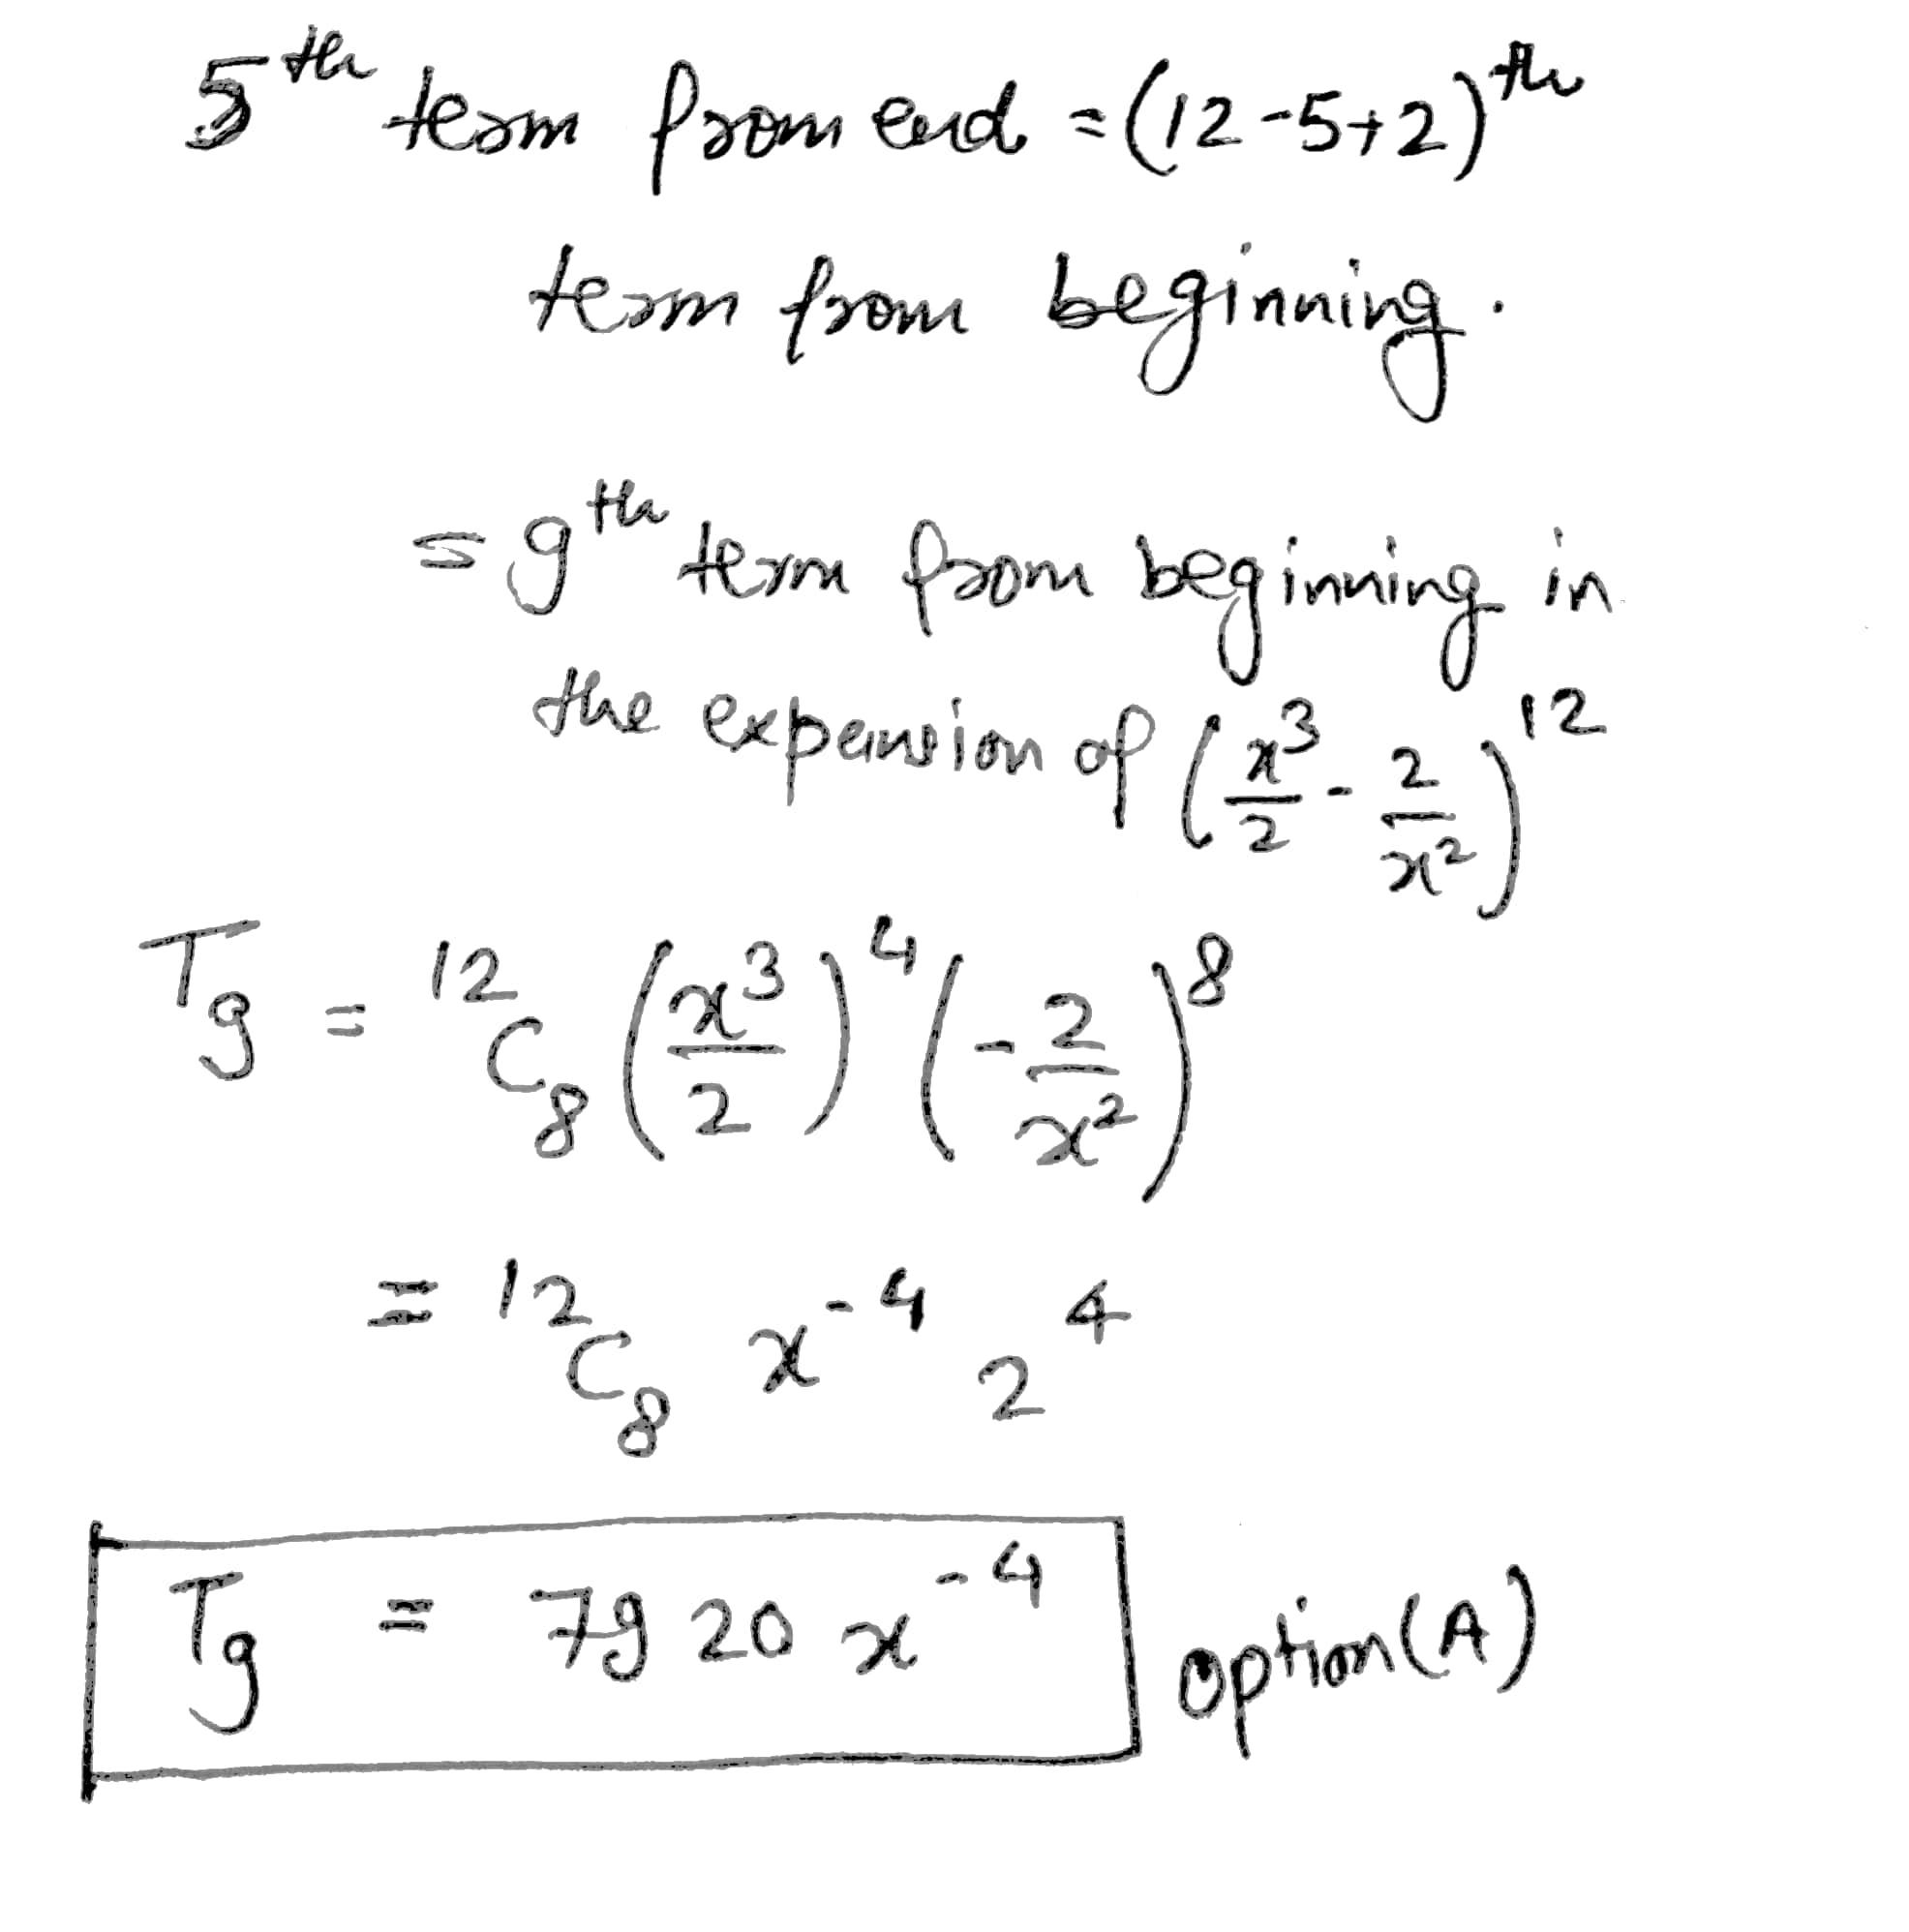 5th term from end = (12-5+2)th
term from beginning.
= 9th term from beginning in
the expansion of (x³/2 - 2/x²)¹²
T₉ = ¹²C₈ (x³/2)⁴ (-2/x²)⁸
= ¹²C₈ x⁻⁴ 2⁴
T₉ = 7920 x⁻⁴ option (A)